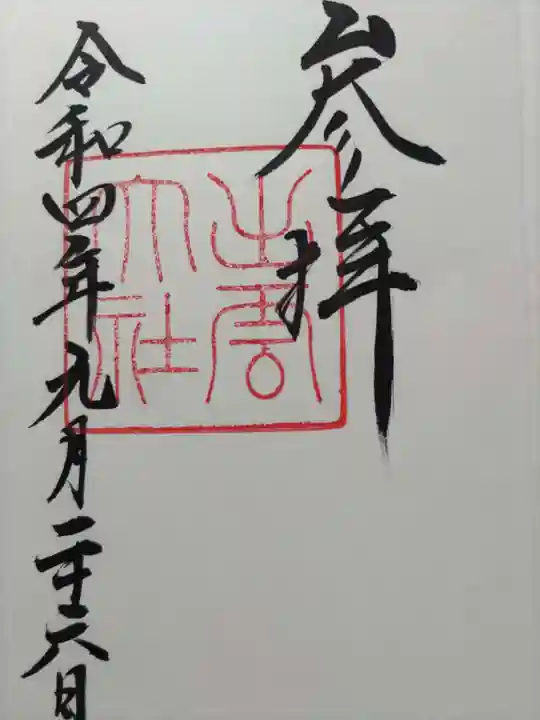 参拝
出雲
大社
令和四年九月二十六日